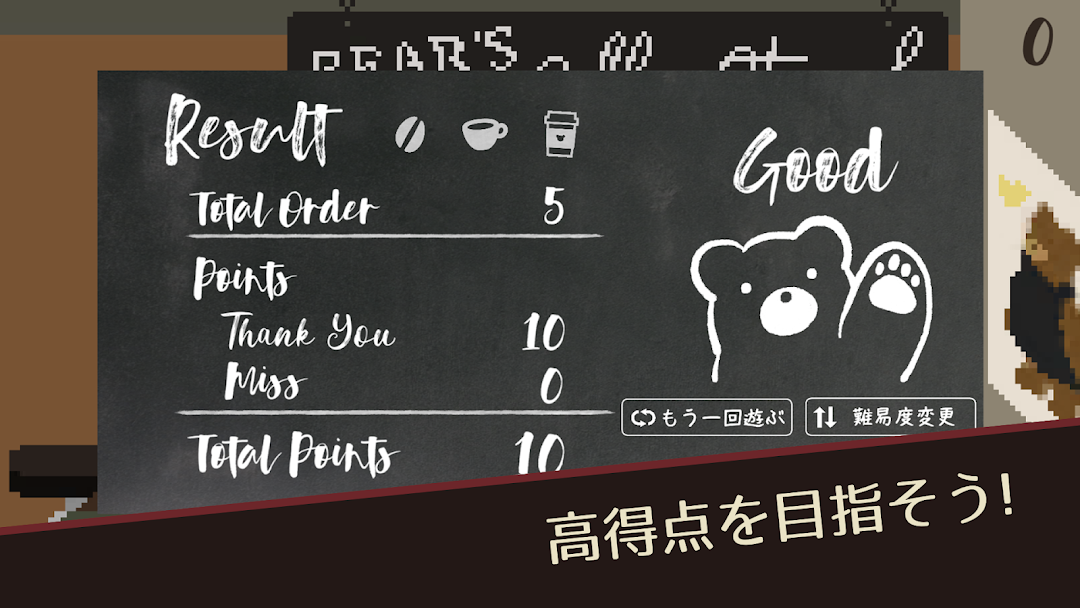 BEAR'S
0
Result
Good
Total Order 5
Points
Thank You 10
Miss 0
もう一回遊ぶ
難易度変更
Total Points 10
高得点を目指そう!